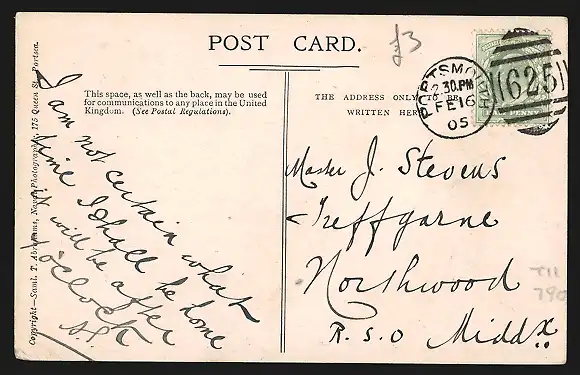 POST CARD.
£3
This space, as well as the back, may be used
for communications to any place in the United
Kingdom. (See Postal Regulations).
THE ADDRESS ONLY
WRITTEN HERE
PORTSMOUTH
2.30PM
FE 16
05
625
PENNY
I am not certain what
time I shall be home
it will be after
o'clock
Master J. Stevens
Treffgarne
Northwood
R.S.O Middx
790
Copyright—Saml. T. Abrahams, Naval Photographer, 175 Queen St. Portsea.